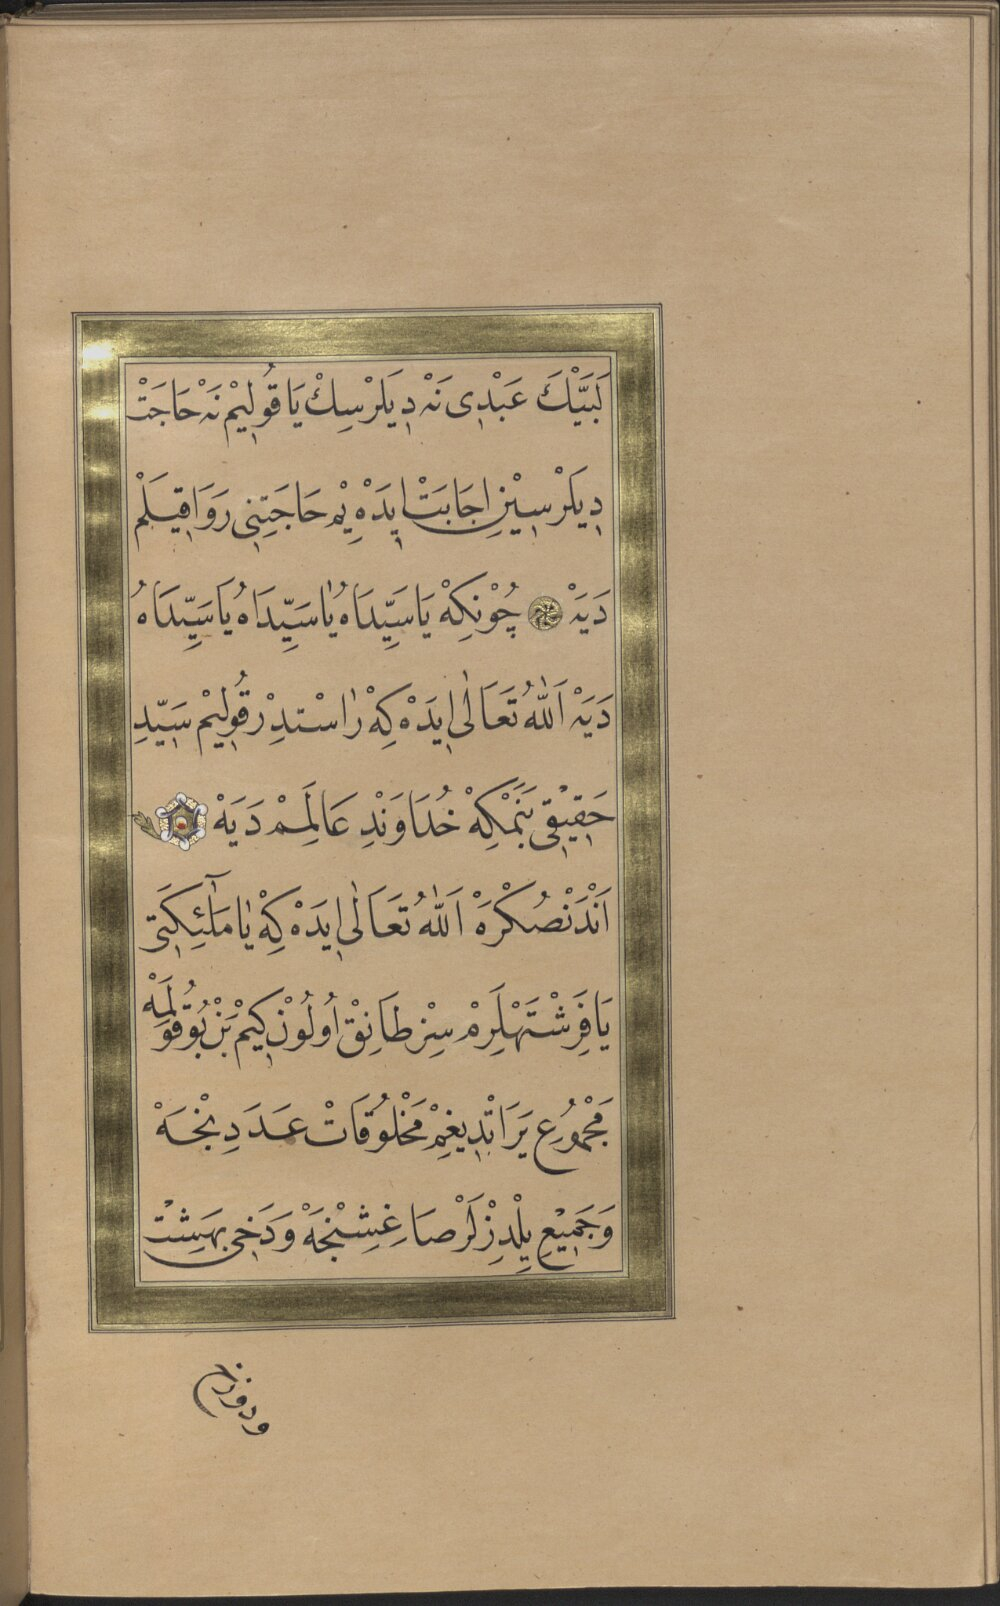 لَبَّيْكَ عَبْدِى نَهْ دِيلَرْسِكْ يَا قُولِيمْ نَهْ حَاجَتْ
دِيلَرْسِيْنِ اِجَابَتْ اِيدَهْ يِمْ حَاجَتِنِى رَوَا قِيلَمْ
دَيَهْ چُوْنِكِهْ يَا سَيِّدَاهُ يَا سَيِّدَاهُ يَا سَيِّدَاهُ
دَيَهْ اَللّٰهُ تَعَالٰى اِيدَهْ كِهْ رَاسْتدِرْ قُولِيمْ سَيِّدِ
حَقِيْقِى بَنَمْكِهْ خُدَاوَنْدِ عَالَمِمْ دَيَهْ
اَنْدَنْصُكْرَهْ اَللّٰهُ تَعَالٰى اِيدَهْ كِهْ يَا مَلَٓئِكَتِى
يَا فِرَشْتَهْلَرِمْ سِزْ طَانِقْ اُولُوْنْ كِيمْ بَنْ بُو قُولُمَهْ
مَجْمُوعِ يَرَاتْدِيغِمْ مَخْلُوقَاتْ عَدَدِنْجَهْ
وَجَمِيْعِ يِلْدِزْلَرْ صَاغِشِنْجَهْ وَدَخِى بِهَشِتْ
ودوزخ